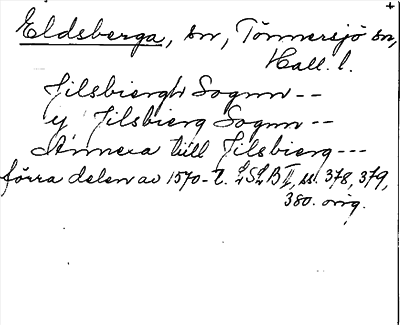 Eldsberga, sn, Tönnersjö sn,
Hall. l.
Jilsbiergh Sognn --
y Jilsbierg Sognn --
Annexa till Jilsbierg ---
förra delen av 1570-t. LSLB II, ss. 378, 379,
380. orig.